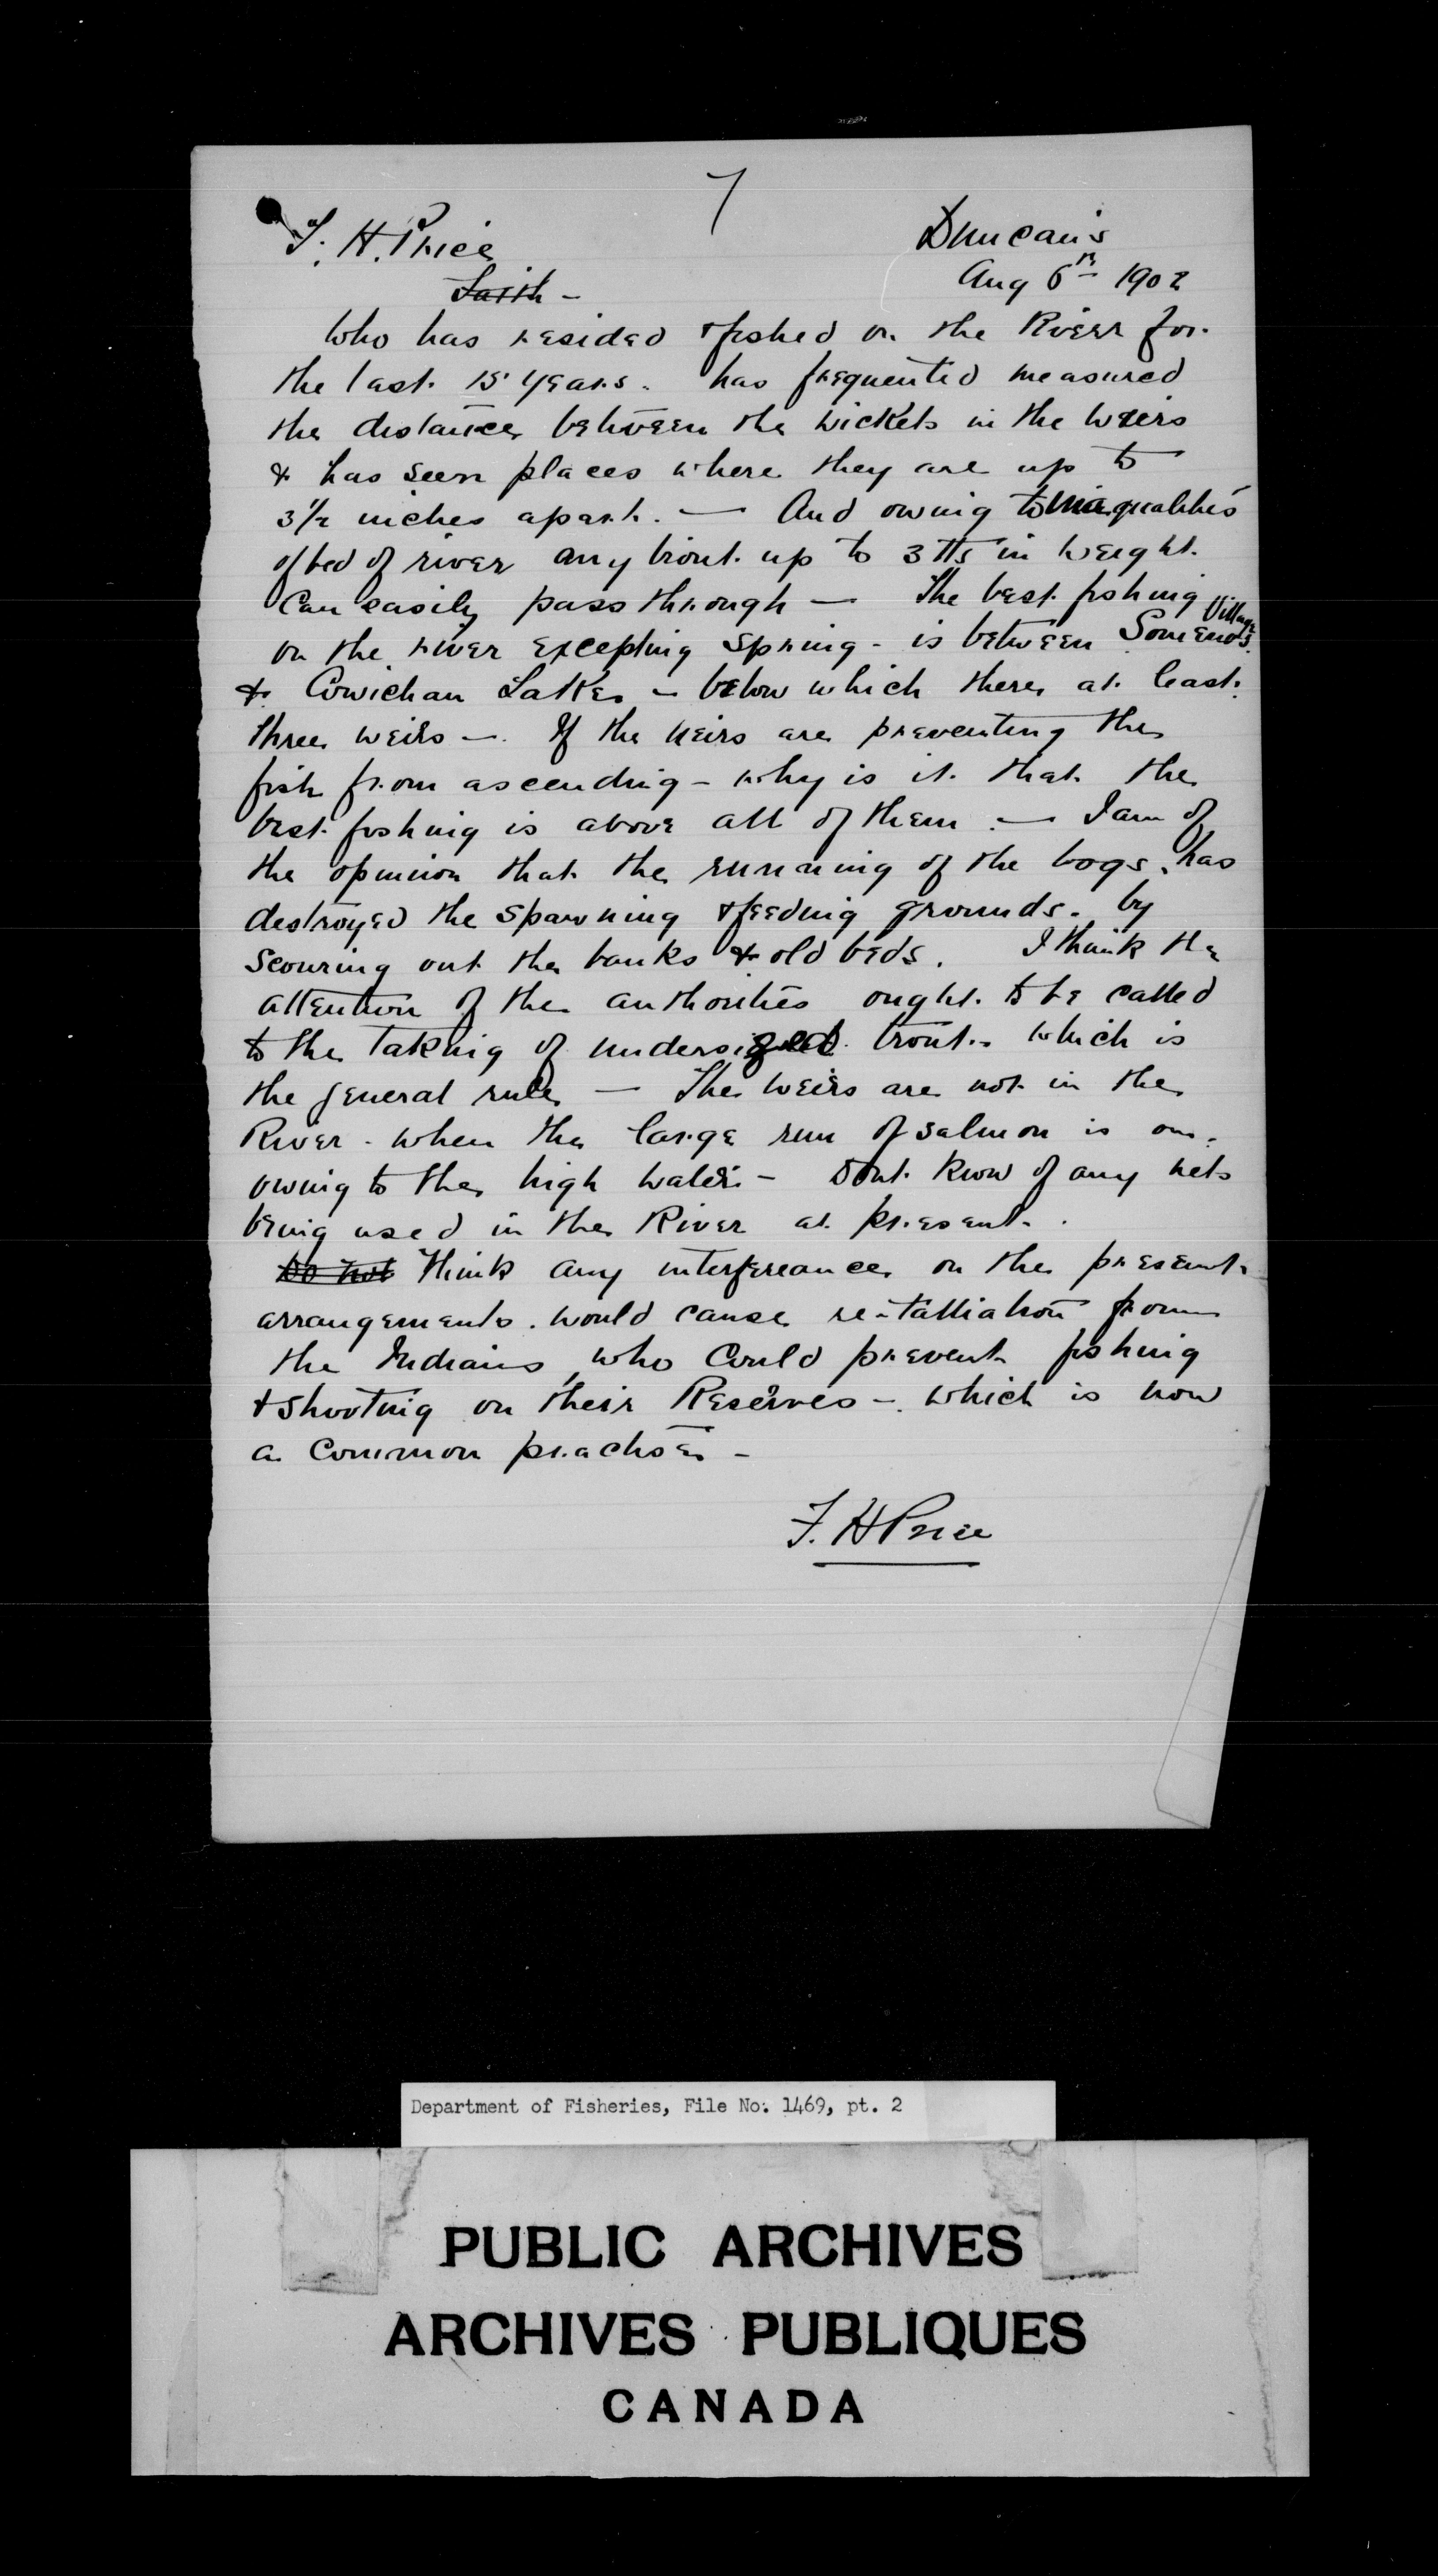 7
F. H. Price
Duncan's
Saith -
Aug 6th 1902
Who has resided & fished on the River for
the last 15 years. has frequented measured
the distance between the wickets in the weirs
& has seen places where they are up to
3 1/2 inches apart. — And owing to inequalities
of bed of river any trout up to 3 lbs in weight
can easily pass through — The best fishing
on the river excepting Spring - is between Somenos Village
& Cowichan Lake - below which there at least
three weirs —. If the weirs are preventing the
fish from ascending - why is it that the
best fishing is above all of them. — I am of
the opinion that the running of the logs. has
destroyed the spawning & feeding grounds. by
scouring out the banks & old beds. I think the
attention of the authorities ought to be called
to the taking of undersized trout. which is
the general rule — The weirs are not in the
River - when the large run of salmon is on.
owing to the high water - Dont know of any nets
being used in the River at present.
Do not think any interfereance on the present
arrangements. would cause re-talliation from
the Indians, who could prevent fishing
& shooting on their Reserves -. which is now
a common practise -
F. H Price
Department of Fisheries, File No. 1469, pt. 2
PUBLIC ARCHIVES
ARCHIVES PUBLIQUES
CANADA